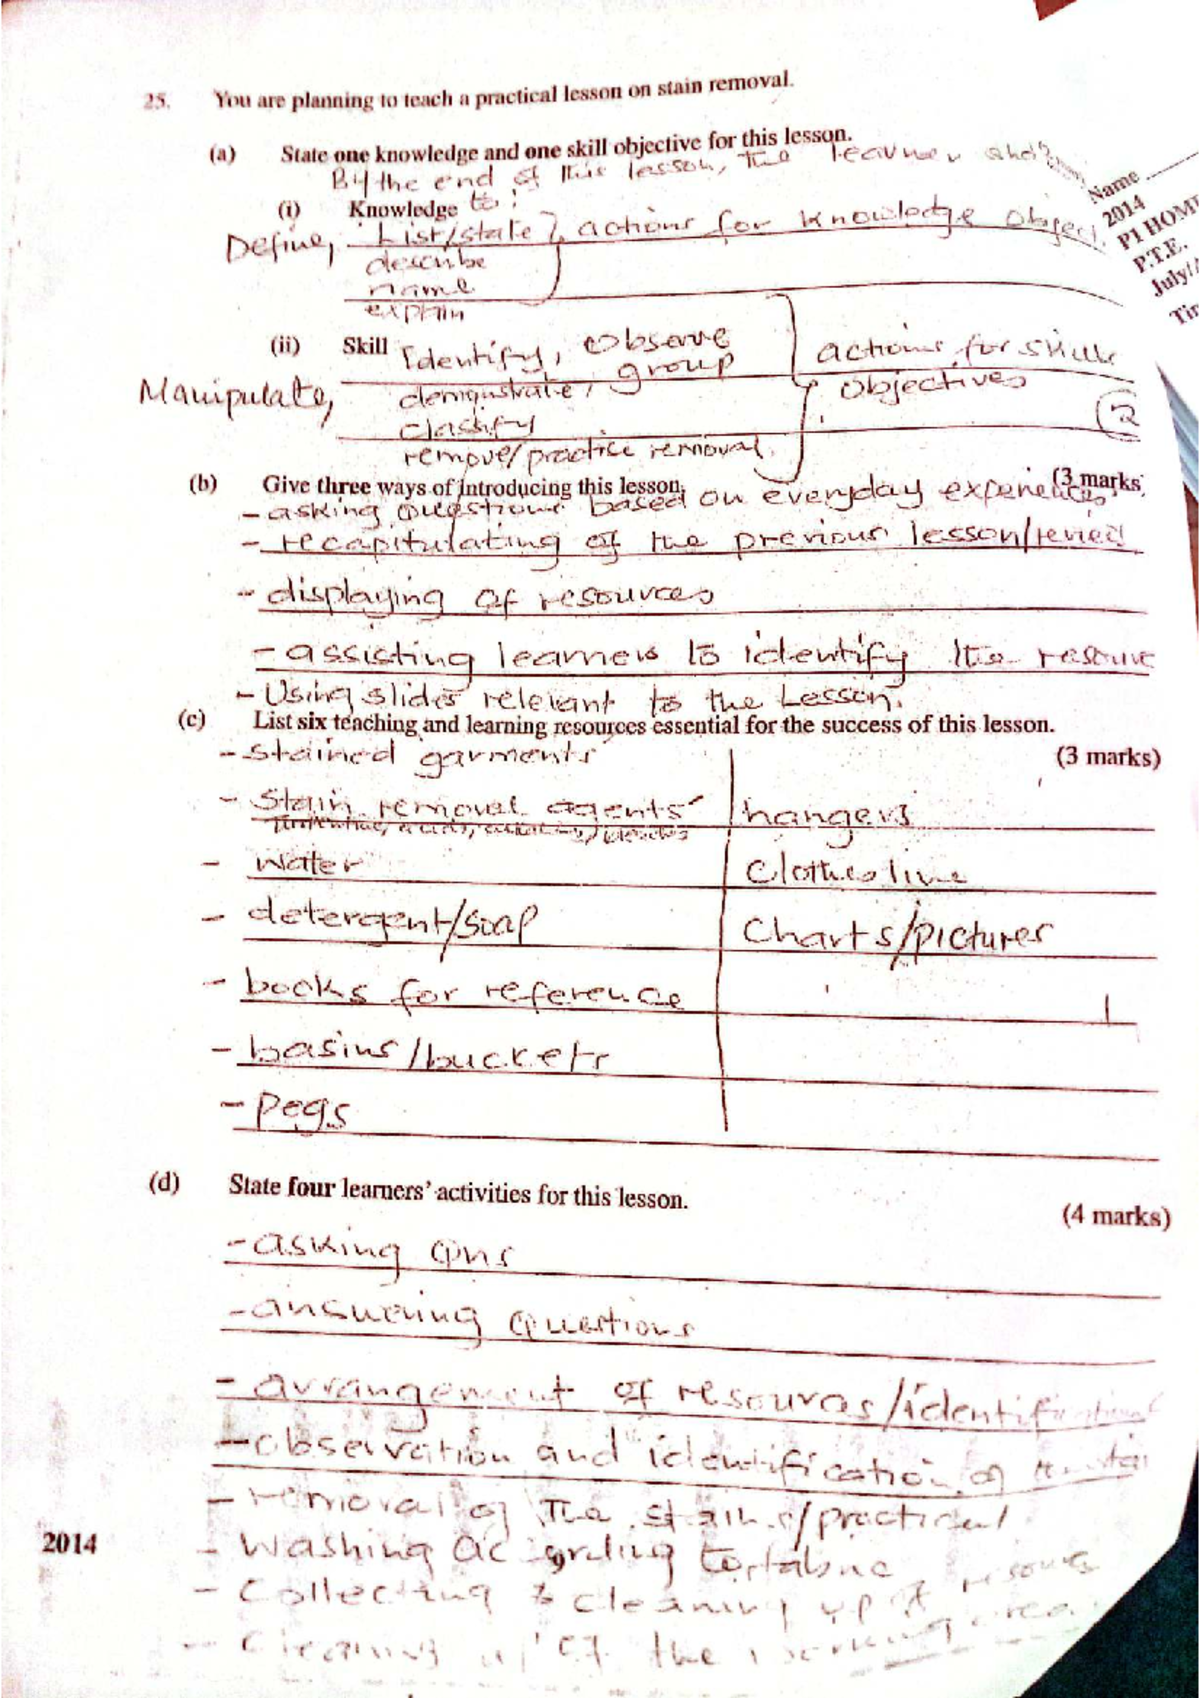 25. You are planning to teach a practical lesson on stain removal.
(a) State one knowledge and one skill objective for this lesson.
By the end of this lesson, the learner
(i) Knowledge to:
Define, List/state, actions for knowledge object.
describe
name
explain
(ii) Skill Identify, Observe
group
actions for skills
Manipulate, demonstrate,
objectives
classify
2
remove/practice removal.
(b) Give three ways of introducing this lesson. (3 marks
- asking questions based on everyday experiences,
- recapitulating of the previous lesson/
- displaying of resources
- assisting learners to identify the
- Using slides relevant to the Lesson.
(c) List six teaching and learning resources essential for the success of this lesson.
(3 marks)
- stained garments
- Stain removal agents hangers
- water Clothes line
- detergent/soap Charts/pictures
- books for reference
- basins/buckets
- pegs
(d) State four learners' activities for this lesson.
(4 marks)
- asking Qns
- answering Questions
- arrangement of resources/identification
- observation and identification of
- removal of the stains/practical
- Washing according to
- Collecting & cleaning up of resources
- of the working area
2014
Name
2014
P1 HOM
P.T.E.
July/
Tim